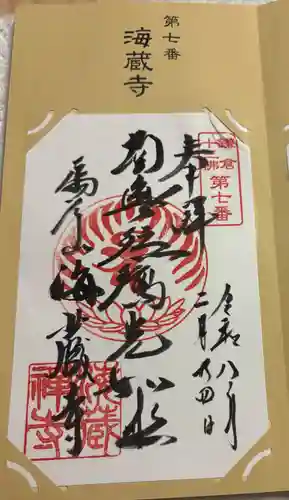 第七番
海蔵寺
鎌倉
十三佛
第七番
奉拝
南無瑠璃光如来
扇谷山 海蔵寺
令和八年
二月廿四日
海蔵
禅寺